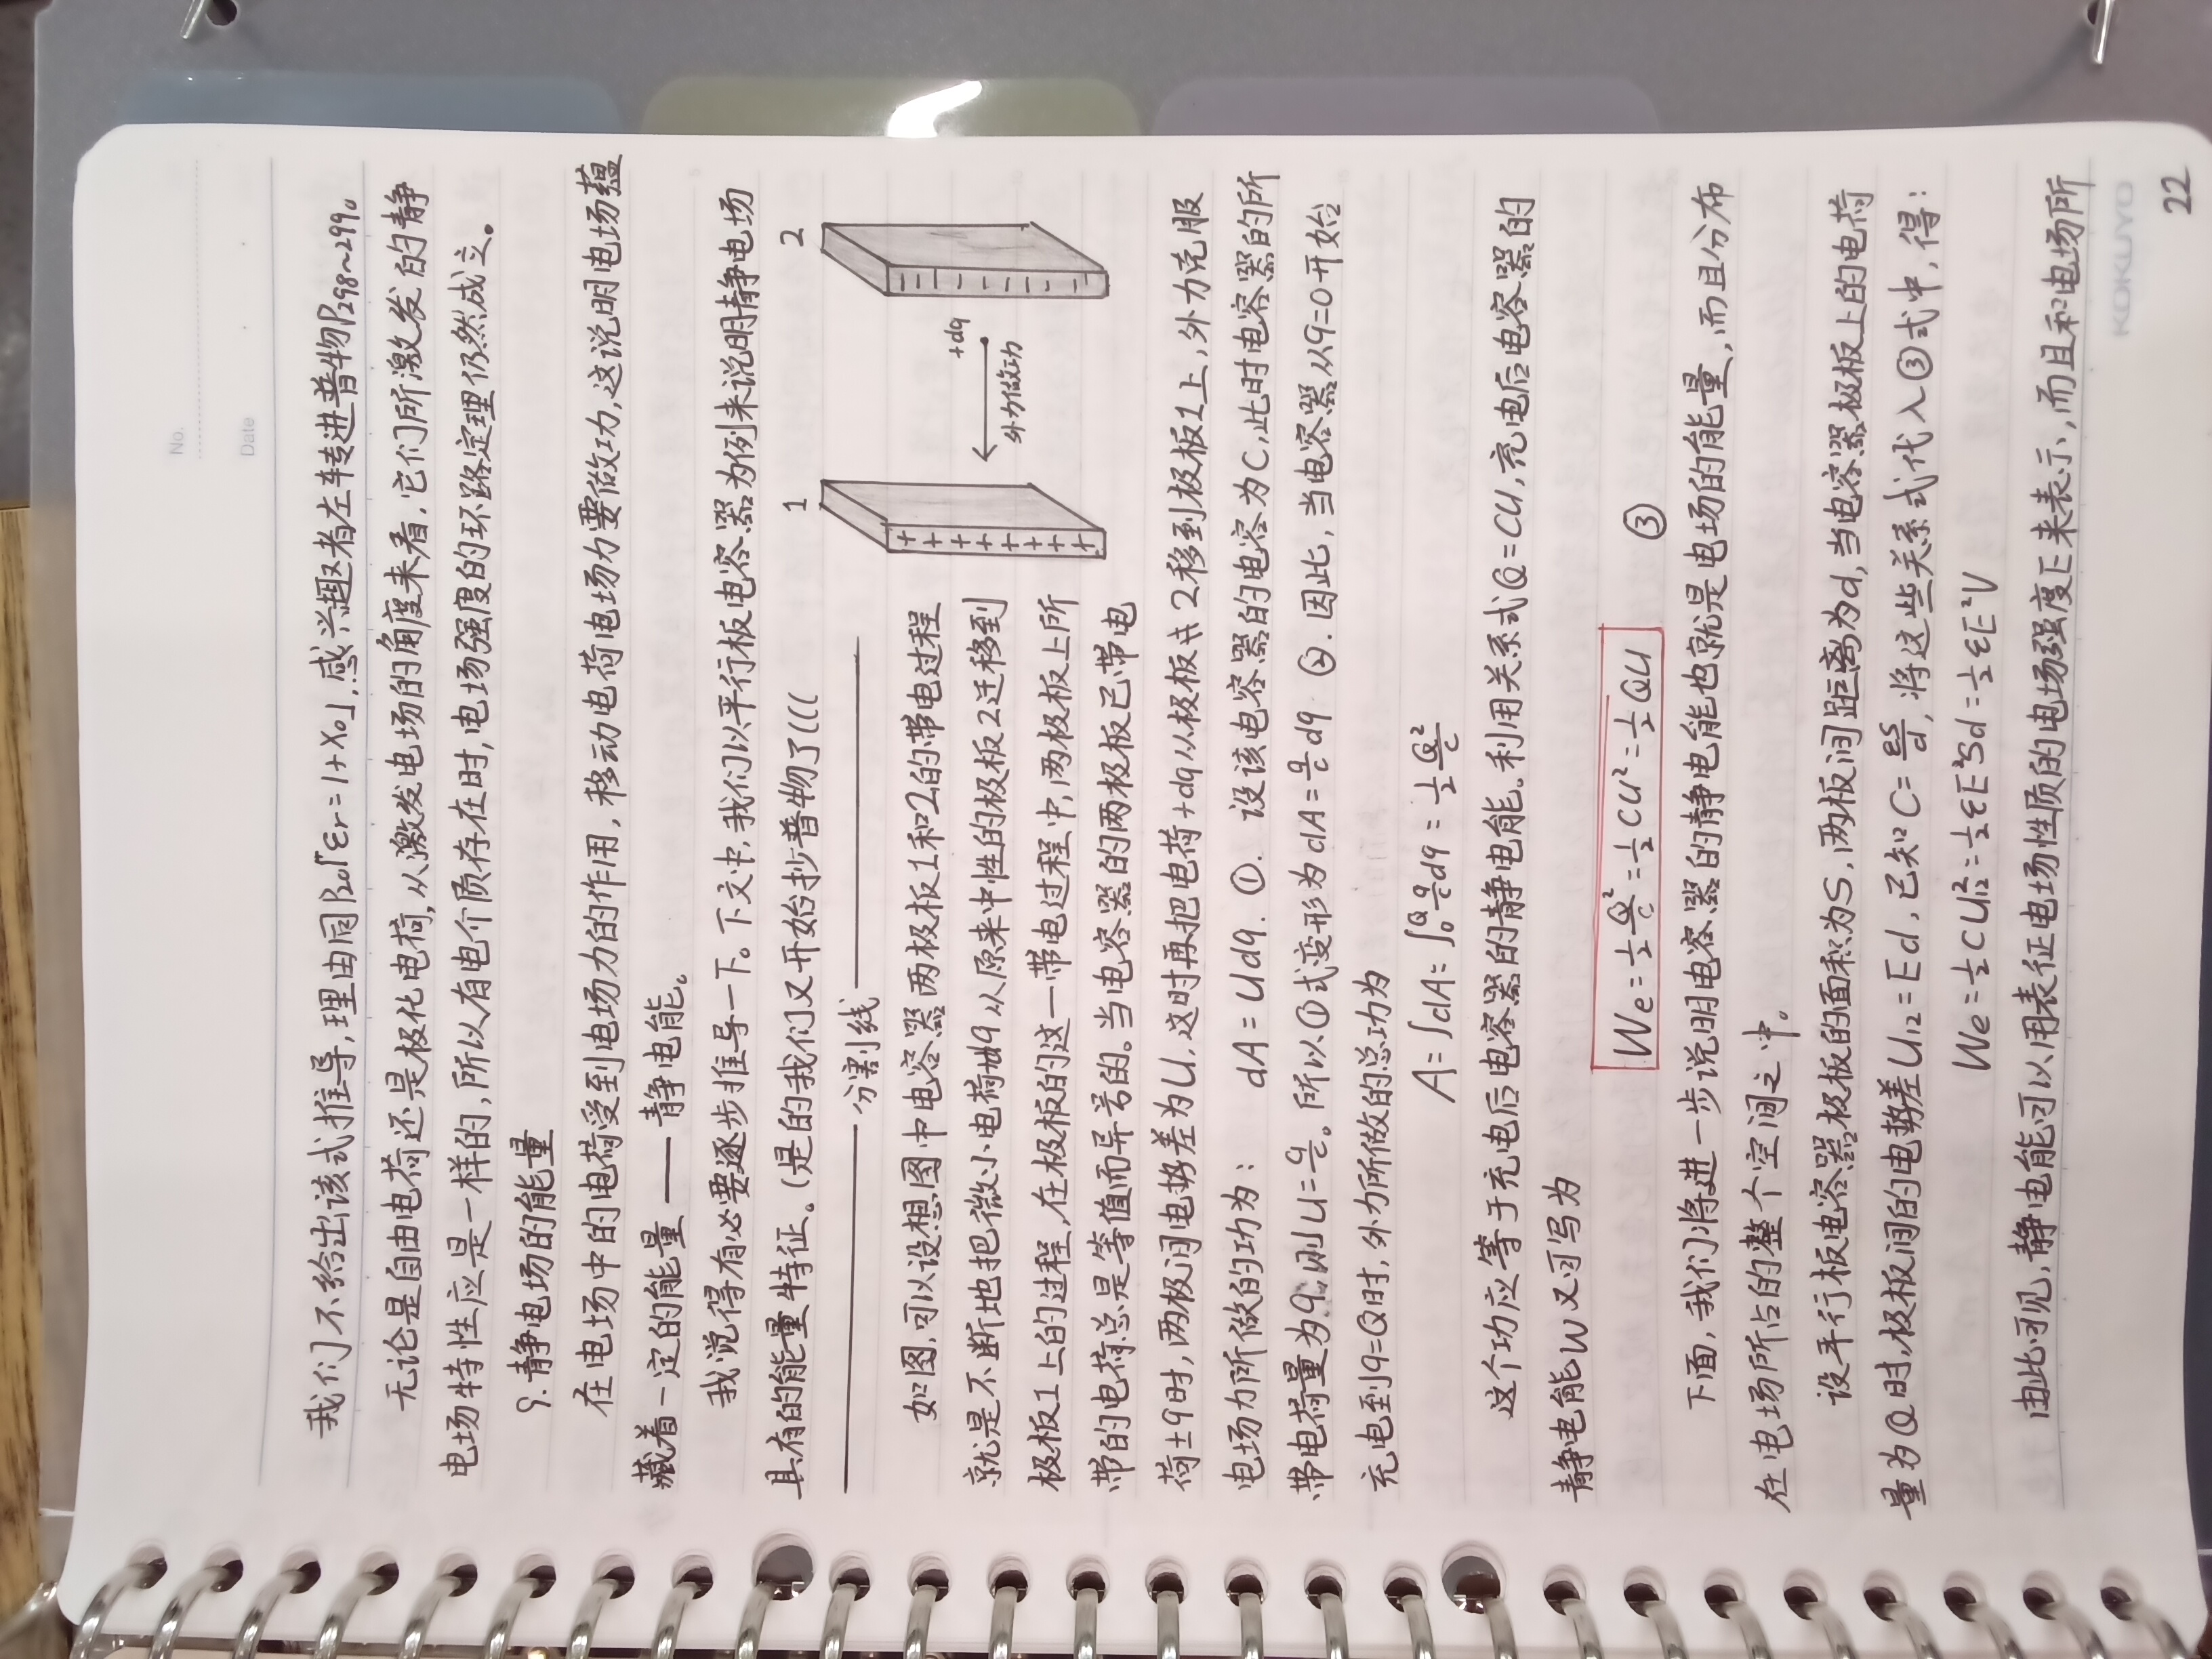 No.
Date
我们不给出该式推导,理由同P₂₀「εr=1+χ₀」,感兴趣者左转进普物P₂₉₈~₂₉₉。
无论是自由电荷还是极化电荷,从激发电场的角度来看,它们所激发的静
电场特性应是一样的,所以有电介质存在时,电场强度的环路定理仍然成立。
9.静电场的能量
在电场中的电荷受到电场力的作用,移动电荷电场力要做功,这说明电场蕴
藏着一定的能量——静电能。
我觉得有必要逐步推导一下。下文中,我们以平行板电容器为例来说明静电场
具有的能量特征。(是的我们又开始抄普物了(((
分割线
1
2
+dq
外力做功
如图,可以设想图中电容器两极板1和2的带电过程
就是不断地把微小电荷+dq从原来中性的极板2迁移到
极板1上的过程,在极板的这一带电过程中,两极板上所
带的电荷总是等值而异号的。当电容器的两极板已带电
荷±q时,两极间电势差为U,这时再把电荷+dq从极板2移到极板1上,外力克服
电场力所做的功为: dA=Udq. ①. 设该电容器的电容为C,此时电容器的所
带电荷量为q,则U=q/C。所以①式变形为dA=q/C dq ②. 因此,当电容器从q=0开始
充电到q=Q时,外力所做的总功为
A=∫dA=∫₀^Q q/C dq=1/2 Q²/C
这个功应等于充电后电容器的静电能。利用关系式Q=CU,充电后电容器的
静电能W又可写为
We=1/2 Q²/C=1/2CU²=1/2QU ③
下面,我们将进一步说明电容器的静电能也就是电场的能量,而且分布
在电场所占的整个空间之中。
设平行板电容器极板的面积为S,两板间距离为d,当电容器极板上的电荷
量为Q时,极板间的电势差U₁₂=Ed,已知C=εS/d,将这些关系式代入③式中,得:
We=1/2CU₁₂²=1/2εE²Sd=1/2εE²V
由此可见,静电能可以用表征电场性质的电场强度E来表示,而且和电场所
KOKUYO
22